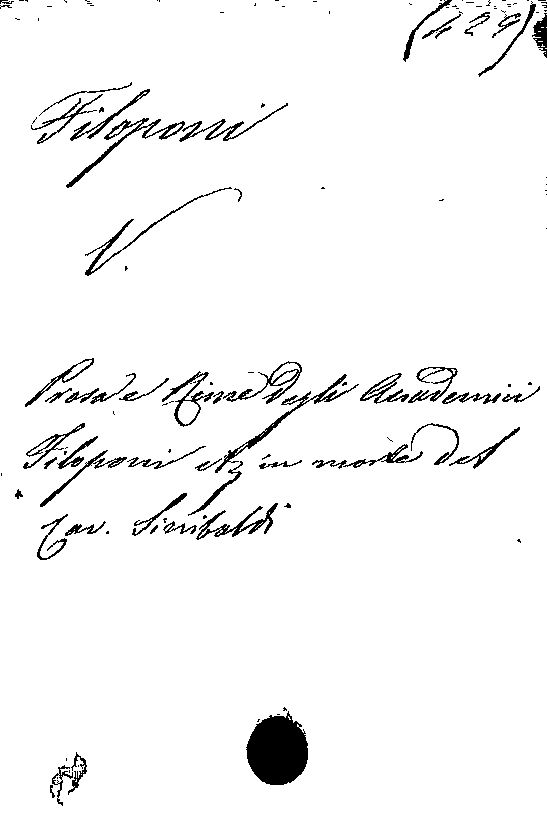 (429)
Filoponi
V.
Prosa e Rime degli Accademici
Filoponi etz in morte del
Cav. Sinibaldi